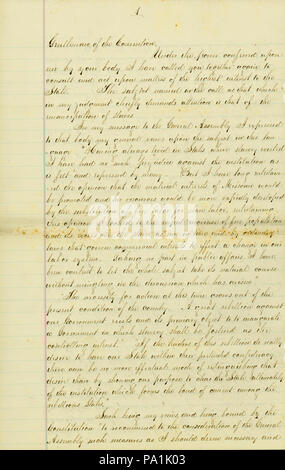 1.
Gentlemen of the Convention,
Under the power conferred upon
me by your body I have called you together again to
consult and act upon matters of the highest interest to the
State. The subject named in the call as that which
in my judgment chiefly demands attention is that of the
emancipation of slaves.
In my message to the General Assembly I expressed
to that body my general views upon the subject in this lan-
guage. "Having always lived in States where slavery existed
I have had no such prejudice against the institution as
is felt and expressed by many. But I have long enter-
tained the opinion that the material interests of Missouri would
be promoted and her resources would be more rapidly developed
by the substitution of free labor, entertaining
this opinion
and its
laws that govern commercial interests to effect a change in our
labor system. Taking no part in public affairs I have
been content to let the whole subject take its natural course
without mingling in the discussion which has arisen.
The necessity for action at this time grows out of the
present condition of the country. A great rebellion against
our Government exists and its primary object is to inaugurate
a Government in which slavery shall be fostered as the
controlling interest." "If the leaders of this rebellion do really
desire to have our State within their pretended confederacy
there can be no more effectual mode of extinguishing that
desire than by showing our purpose to clear the State ultimately
of the institution which forms the bond of cement among the
rebellious States."
Such being my views and being bound by the
Constitution "to recommend to the consideration of the General
Assembly such measures as I should deem necessary and
alamy
alamy stock photo
PA1K03